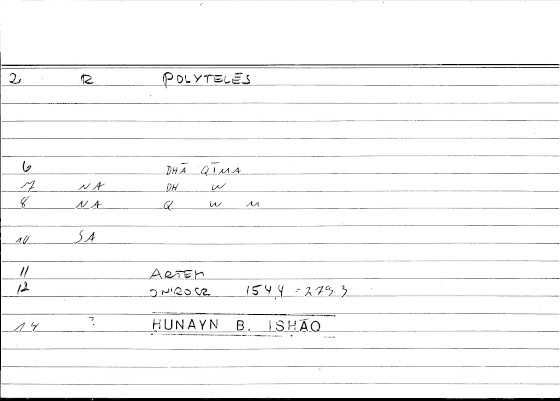 2 R POLYTELÉS
6 DHĀ QĪMA
7 NA DH W
8 NA Q W M
10 SA
11 ARTEM
12 ONIROCR 154,4 = 279 3
14 ? HUNAYN B. ISHĀQ